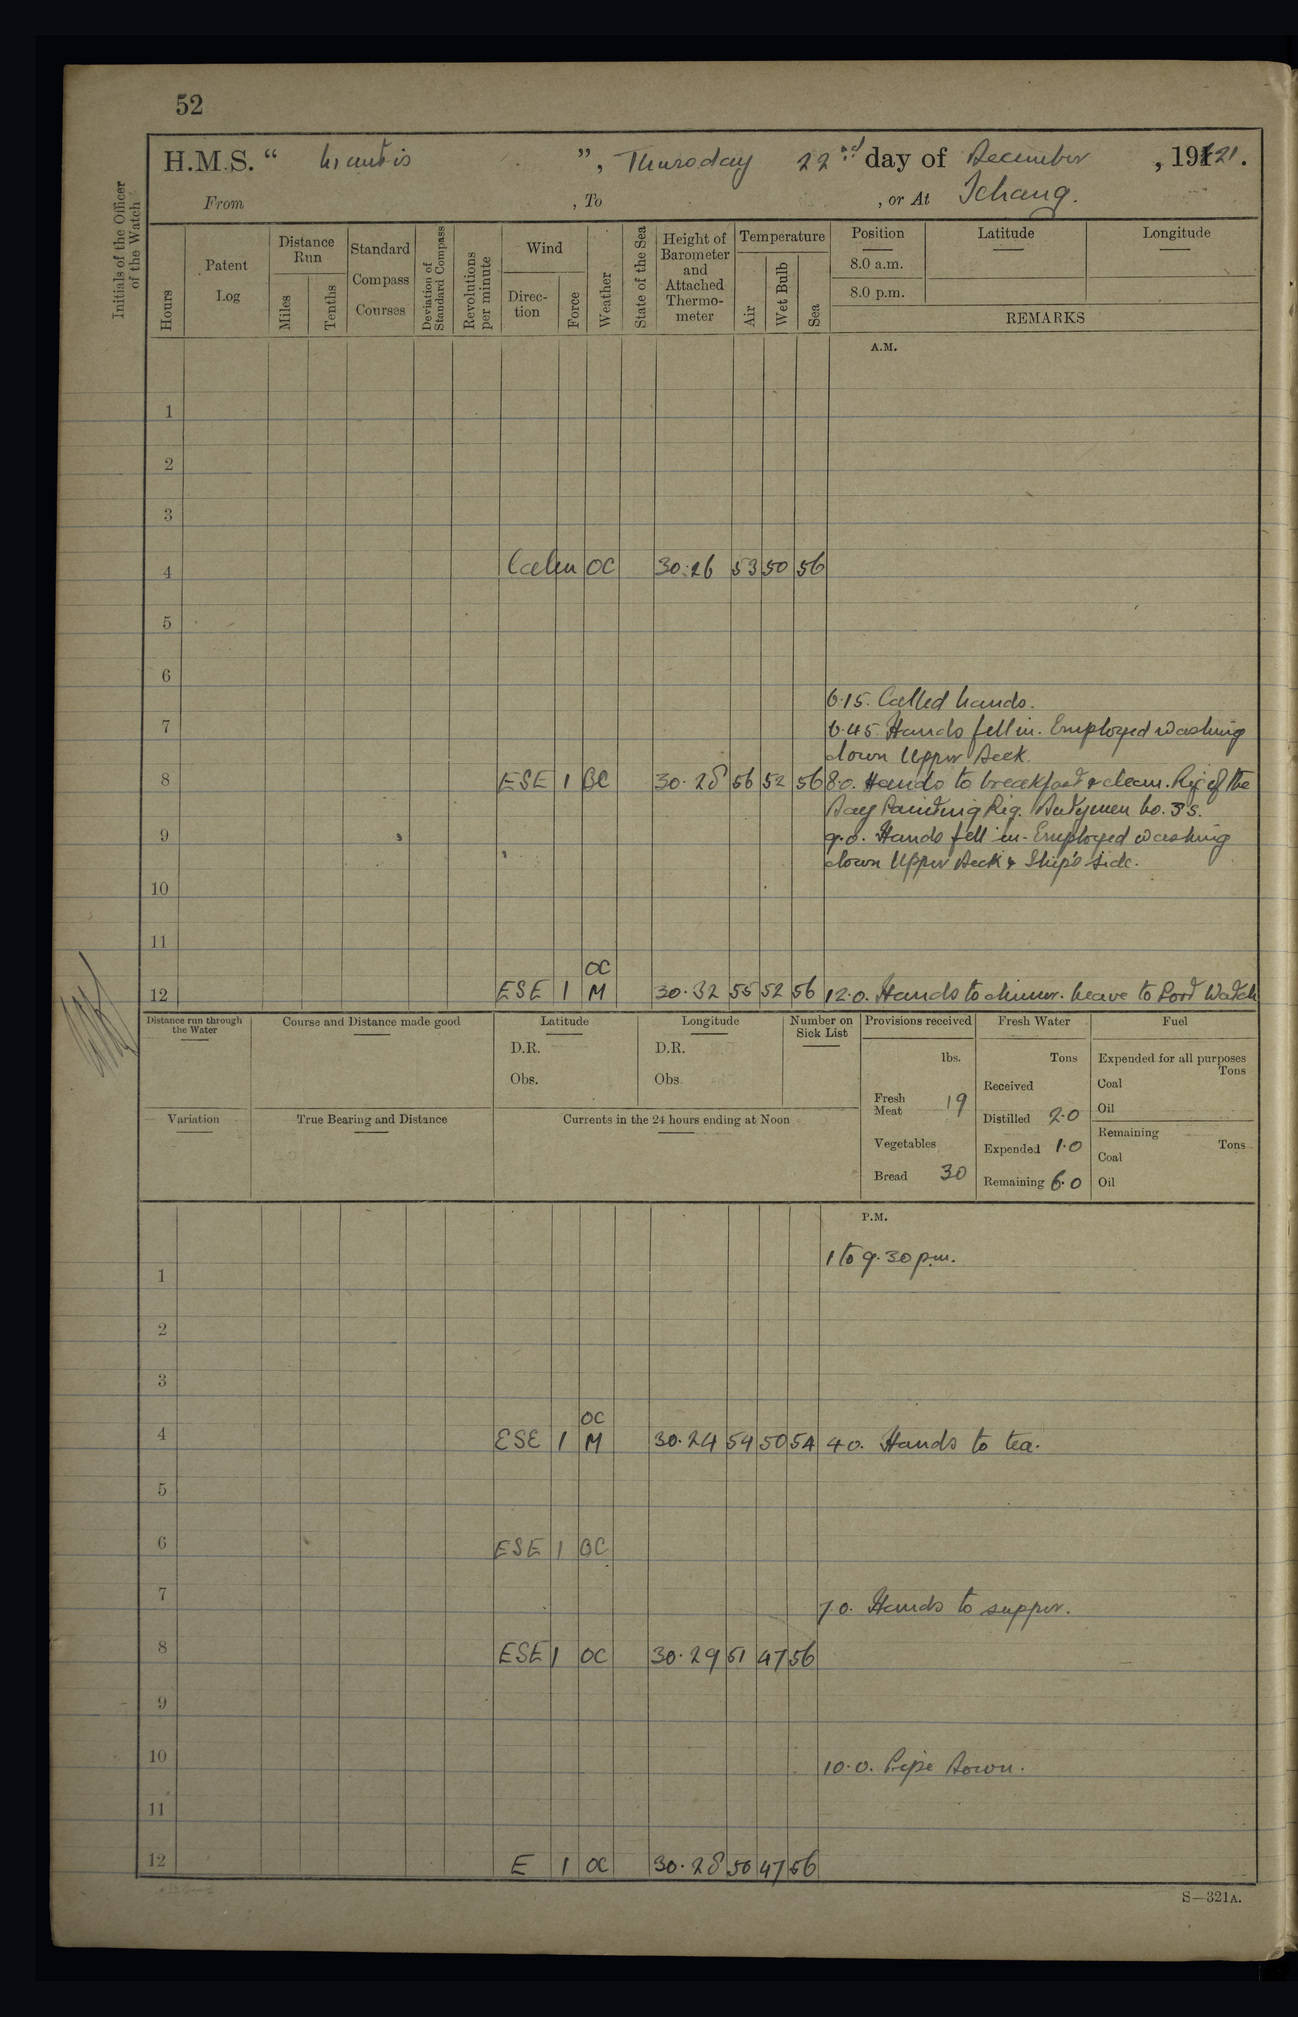 52
H.M.S. “ Mantis ”, Thursday 22nd day of December , 1921.
From , To , or At Ichang.
Initials of the Officer of the Watch
Hours
Patent Log
Distance Run
Miles
Tenths
Standard Compass Courses
Deviation of Standard Compass
Revolutions per minute
Wind
Direction
Force
Weather
State of the Sea
Height of Barometer and Attached Thermometer
Temperature
Air
Wet Bulb
Sea
Position Latitude Longitude
8.0 a.m.
8.0 p.m.
REMARKS
A.M.
1
2
3
4 Calm OC 30.26 53 50 56
5
6
6.15. Called hands.
7 6.45. Hands fell in. Employed washing
down Upper Deck.
8 ESE 1 BC 30.28 56 52 56 8.0. Hands to breakfast & clean. Rig of the
Day Painting Rig. Dutymen No. 3's.
9 9.0. Hands fell in. Employed washing
down Upper Deck & Ship's side.
10
11
OC
12 ESE 1 M 30.32 55 52 56 12.0. Hands to dinner. Leave to Port Watch
Distance run through the Water
Course and Distance made good
Latitude
D.R.
Obs.
Longitude
D.R.
Obs.
Number on Sick List
Provisions received
lbs.
Fresh Meat 19
Vegetables
Bread 30
Fresh Water
Tons
Received
Distilled 2.0
Expended 1.0
Remaining 6.0
Fuel
Expended for all purposes
Tons
Coal
Oil
Remaining
Tons
Coal
Oil
Variation
True Bearing and Distance
Currents in the 24 hours ending at Noon
P.M.
1 to 9.30 p.m.
1
2
3
OC
4 ESE 1 M 30.24 54 50 54 4.0. Hands to tea.
5
6 ESE 1 BC
7 7.0. Hands to supper.
8 ESE 1 OC 30.29 51 47 56
9
10 10.0. Pipe Down.
11
12 E 1 OC 30.28 50 47 56
S—321A.